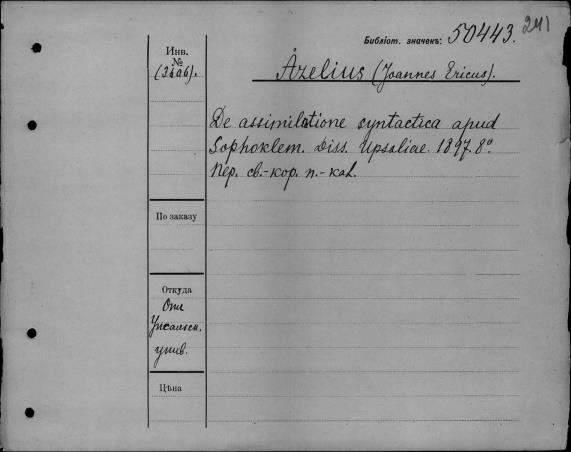 Библіот. значекъ: 50443. 241
Инв. № (3406).
Åzelius (Joannes Ericus).
De assimilatione syntactica apud
Sophoklem. Diss. Upsaliae 1897. 8°
Пер. св.-кор. п.-кал.
По заказу
Откуда
Отъ
Упсальск.
унив.
Цѣна